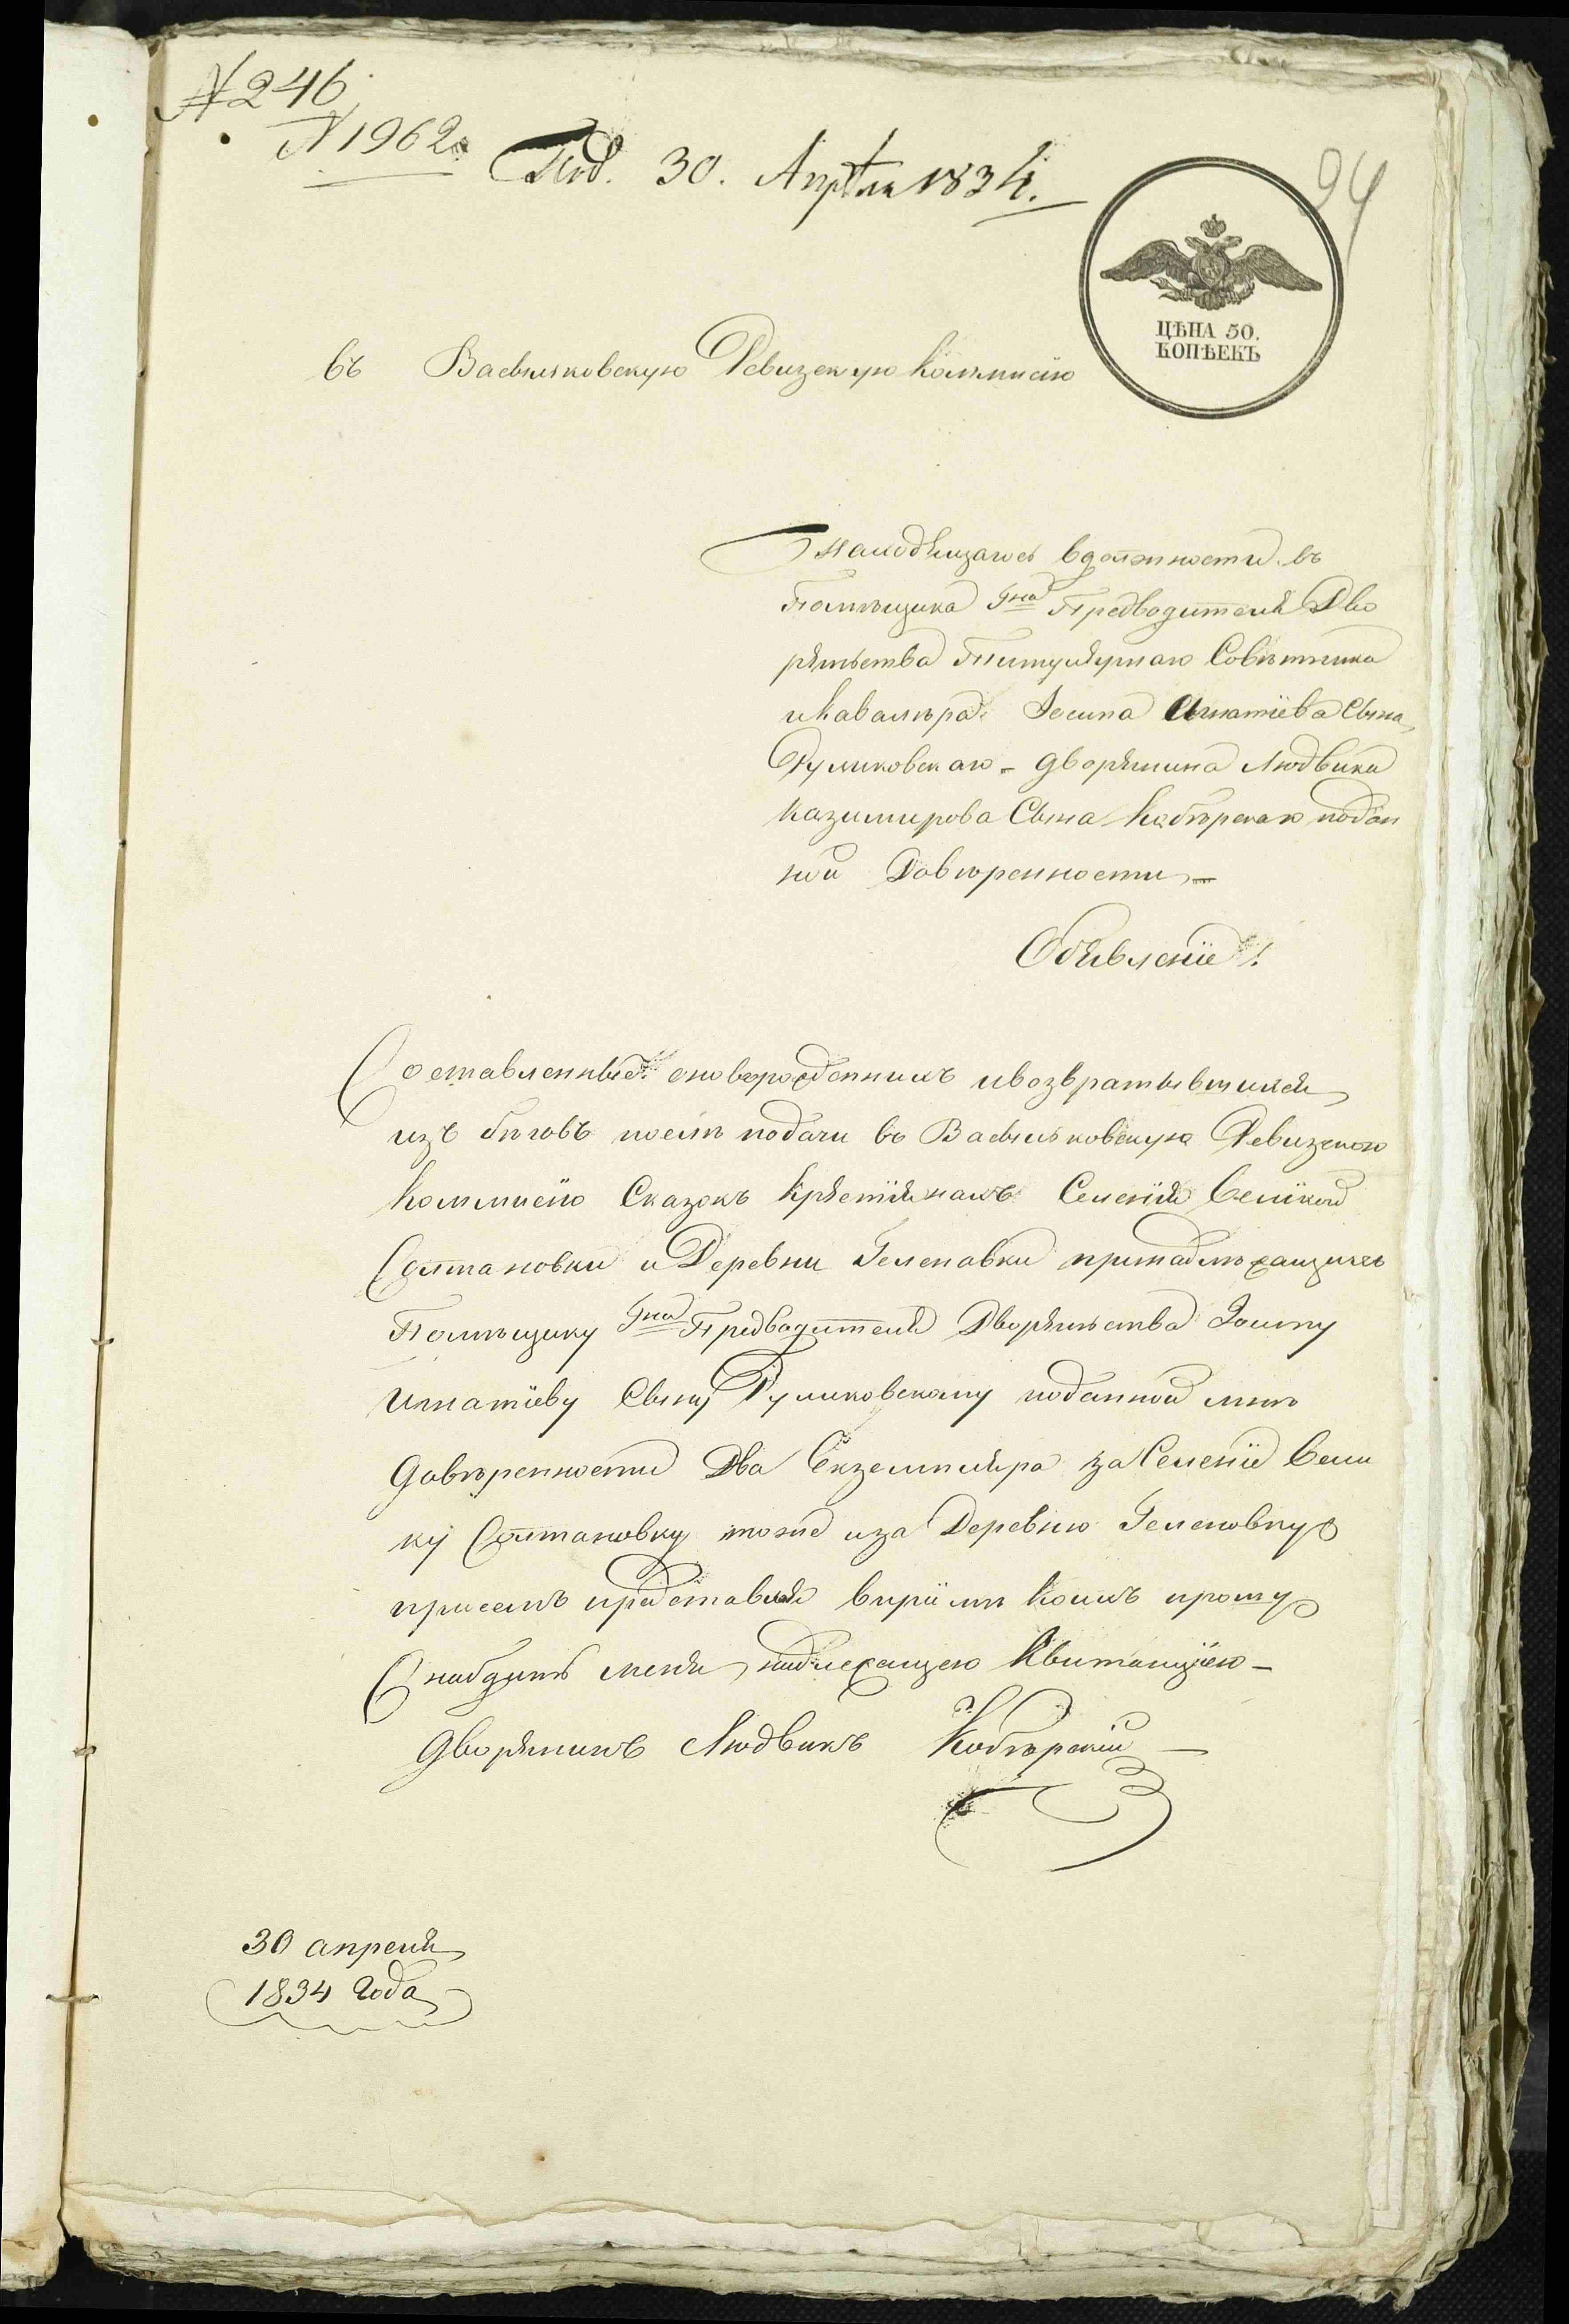 № 246
№ 1962
Под. 30. Апрѣля 1834.
94
ЦѢНА 50.
КОПѢЕКЪ
Въ Васильковскую Ревизскую Коммисію
Находящагося вдолжности въ
Помѣщика Гна Предводителя Дво
рянства Титулярнаго Совѣтника
и Кавалѣра Іосипа Игнатіева Сына
Руликовскаго - дворянина Людвика
Казимирова Сына Кобѣрскаго подан
ной Довѣренности -
Обявленіе!
Составленные оноворожденныхъ ивозвратывшихся
изъ бѣговъ послѣ подачи въ Васильковскую Ревизскою
Коммисію Сказокъ Крястіянахъ Селенія Великой
Солтановки и Деревни Геленовки принадлѣжащихъ
Помѣщику Гна Предводителя Дворянъства Іосипу
Игнатіеву Сыну Руликовскому поданной мнѣ
довѣренности Два Екземпляра за Селеніе Вели
ку Солтановку тоже иза Деревню Геленовку
присемъ представляя впріѣмѣ коихъ прошу
Снабдить меня надлежащею Квитанціею -
дворянинъ Людвикъ Кобѣрскій
30 апреля
1834 года